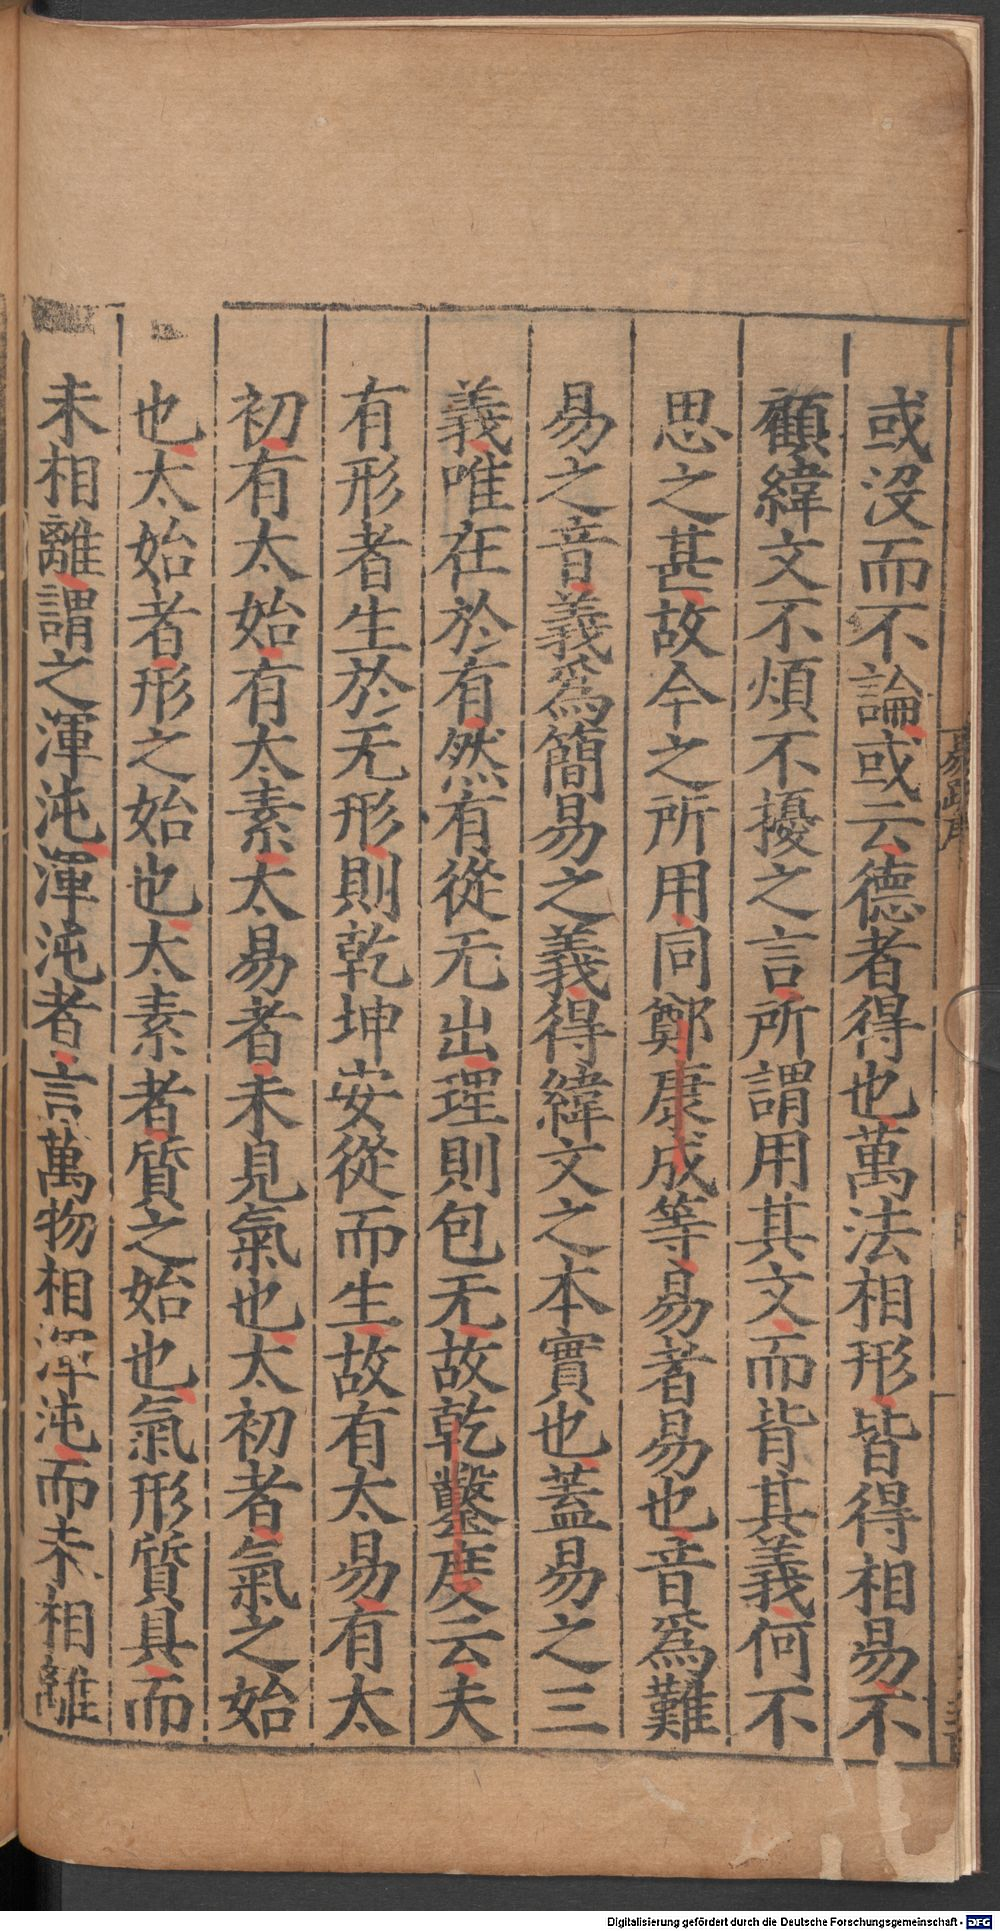 或沒而不論或云德者得也萬法相形皆得相易不
顧緯文不煩不擾之言所謂用其文而背其義何不
思之甚故今之所用同鄭康成等易者易也音爲難
易之音義爲簡易之義得緯文之本實也蓋易之三
義唯在於有然有從无出理則包无故乾鑿度云夫
有形者生於无形則乾坤安從而生故有太易有太
初有太始有太素太易者未見氣也太初者氣之始
也太始者形之始也太素者質之始也氣形質具而
未相離謂之渾沌渾沌者言萬物相渾沌而未相離
易疏序
Digitalisierung gefördert durch die Deutsche Forschungsgemeinschaft - DFG